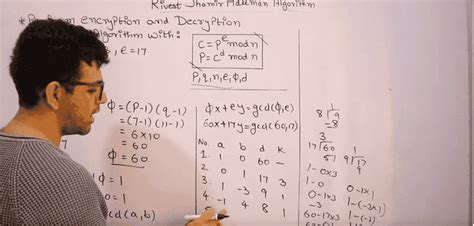 Rivest Shamir Adleman Algorithm
encryption and Decryption
Algorithm with:
, e=17
C=P^e mod n
P=C^d mod n
P,q,n,e,ϕ,d
ϕ=(P-1)(q-1)
=(7-1)(11-1)
=6x10
=60
ϕ=60
ϕ=1
0=1
cd(a,b)
ϕx+ey=gcd(ϕ,e)
60x+17y=gcd(60,17)
No. a b d K
1. 1 0 60 -
2. 0 1 17 3
3. 1 -3 9 1
4. -1 4 8 1
8 1 9
-8
3 1
17 60 51 9 17
1-0x3
1-0 0-1x1
0-1x3 1-(-3x1)
0-3
60-17x3 1-(-2)